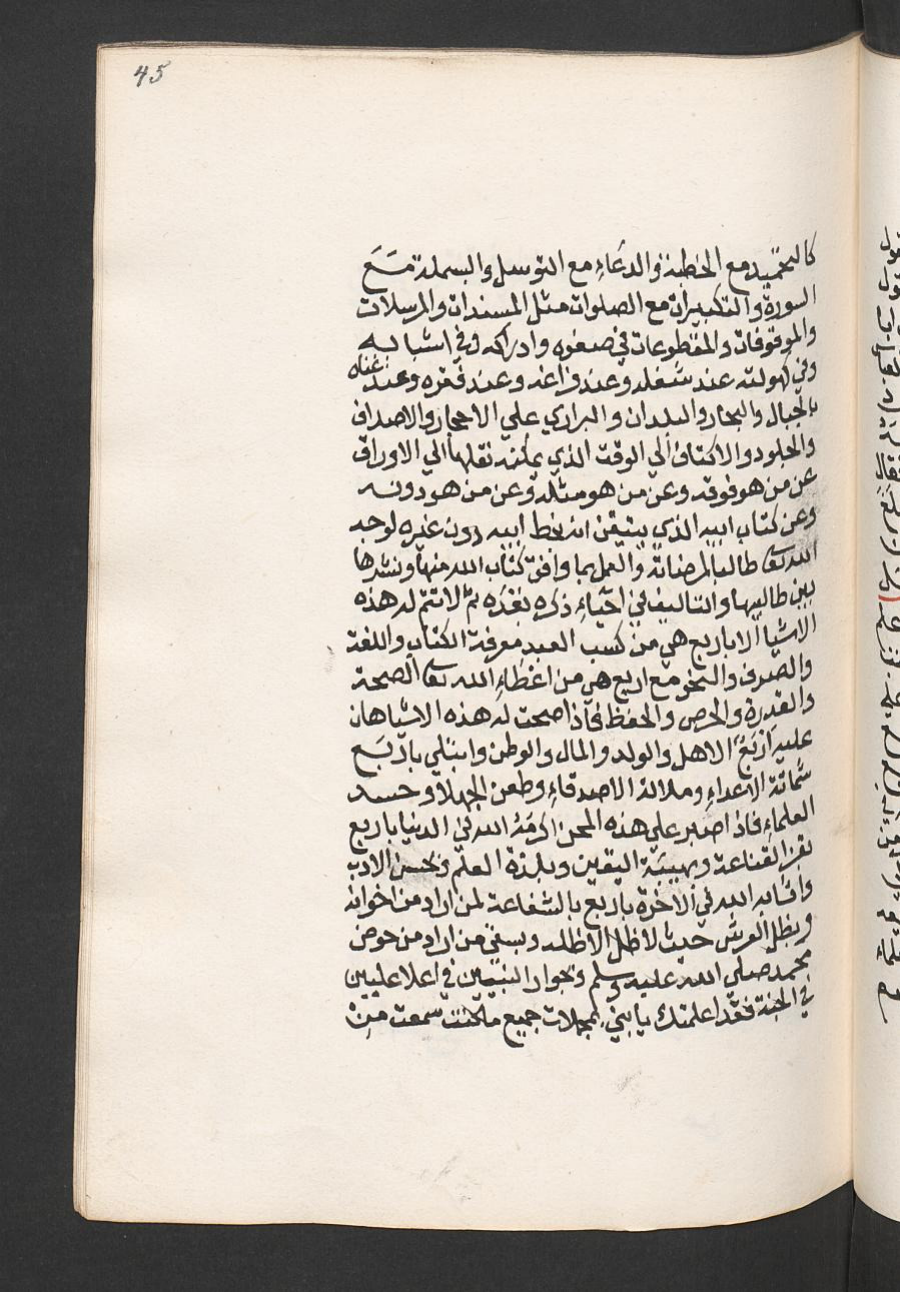 45
كالتحميد مع الخطبة والدعاء مع التوسل والبسملة مع
السورة والتكبيرات مع الصلوات مثل المسندات والمرسلات
والموقوفات والمقطوعات في صغره وادراكه وفي اشبابه
وفي كهولته عند شغله وعند فراغه وعند فقره وعند غناه
بالجبال والبحار والبلدان والبراري علي الاحجار والاصداف
والجلود والاكتاف الي الوقت الذي يمكنه نقلها الي الاوراق
عن من هو فوقه وعن من هو مثله وعن من هو دونه
وعن كتاب ابيه الذي يتيقن انه بخط ابيه دون غيره لوجه
الله تعا طالبا لمرضاته والعمل بما وافق كتاب الله منها ونشرها
بين طالبيها والتاليف في احياء ذكره بعده ثم لا تتم له هذه
الاشيا الا باربع هي من كسب العبد معرفة الكتاب واللغة
والصرف والنحو مع اربع هي من اعطاء الله تعا الصحة
والقدرة والحرص والحفظ فاذا صحت له هذه الاشيا هان
عليه اربع الاهل والولد والمال والوطن وابتلي باربع
شماتة الاعداء وملالة الاصدقاء وطعن الجهلا وحسد
العلماء فاذا صبر علي هذه المحن اكرمه الله في الدنيا باربع
بعز القناعة وبهيبة اليقين وبلذة العلم وبحسن الادب
واثابه الله في الاخرة باربع بالشفاعة لمن اراد من اخوانه
وبظل العرش حيث لا ظل الا ظله وبسقي من اراد من حوض
محمد صلي الله عليه وسلم وبجوار النبيين في اعلا عليين
في الجنة فقد اعلمتك يا بني بمجملات جميع ما كنت سمعت من